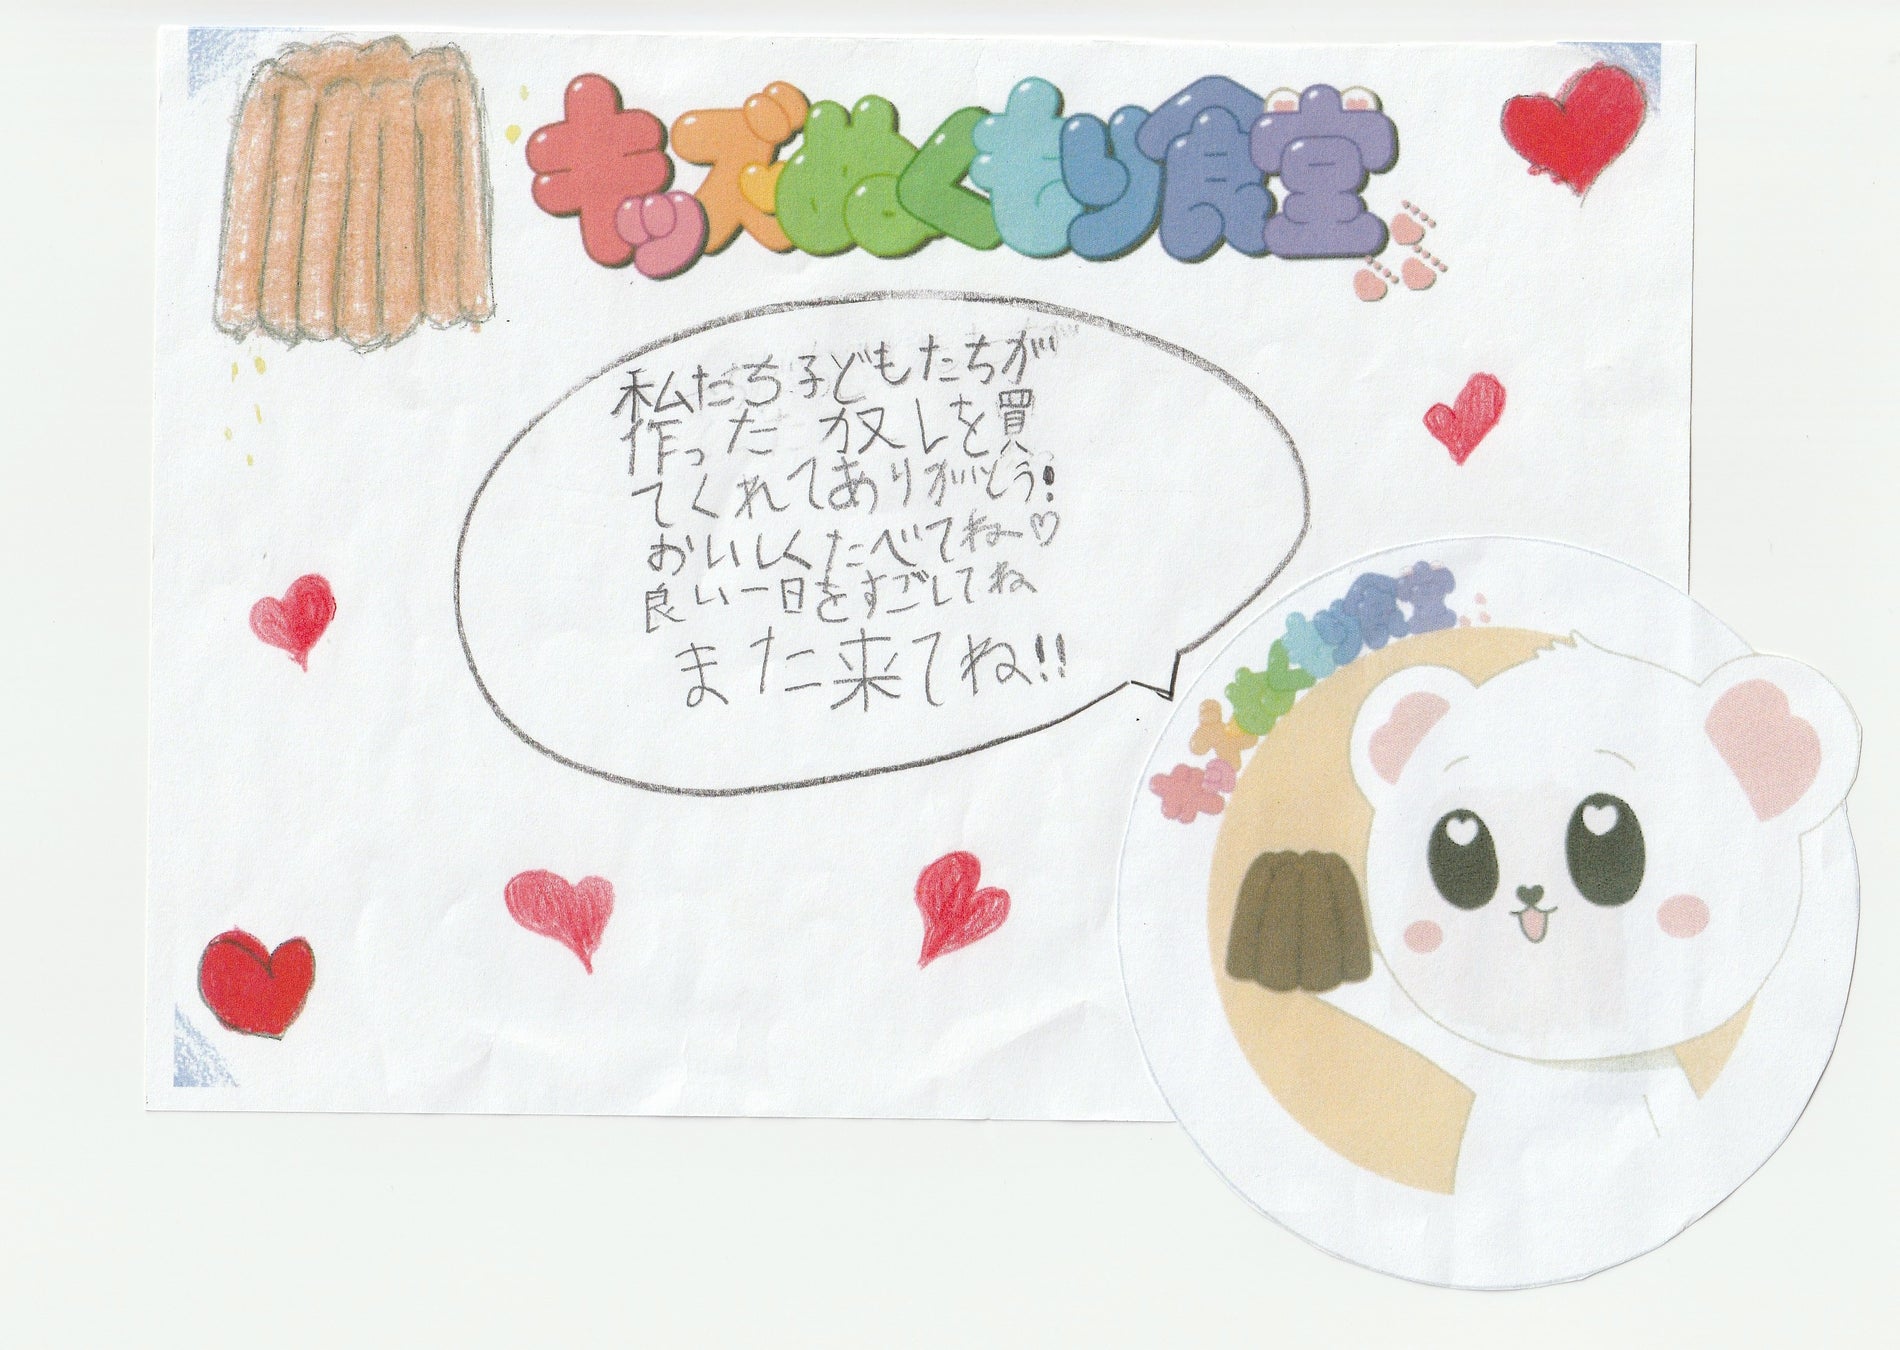 キッズぬくもり食堂
私たち子どもたちが
作った カヌレを買
てくれてありがとう!
おいしくたべてね♡
良い一日をすごしてね
また来てね!!
キッズぬくもり食堂